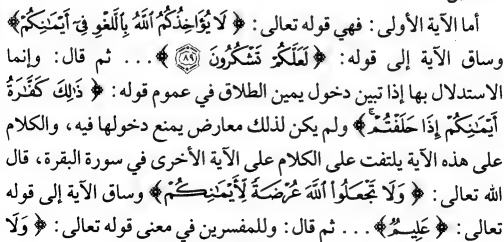 أما الآية الأولى: فهي قوله تعالى: ﴿لَا يُؤَاخِذُكُمُ اللَّهُ بِاللَّغْوِ فِي أَيْمَانِكُمْ﴾
وساق الآية إلى قوله: ﴿لَعَلَّكُمْ تَشْكُرُونَ ٨٩﴾... ثم قال: وإنما
الاستدلال بها إذا تبين دخول يمين الطلاق في عموم قوله: ﴿ذَلِكَ كَفَّارَةُ
أَيْمَانِكُمْ إِذَا حَلَفْتُمْ﴾ ولم يكن لذلك معارض يمنع دخولها فيه، والكلام
على هذه الآية يلتفت على الكلام على الآية الأخرى في سورة البقرة، قال
لله تعالى: ﴿وَلَا تَجْعَلُوا اللَّهَ عُرْضَةً لِأَيْمَانِكُمْ﴾ وساق الآية إلى قوله
تعالى: ﴿عَلِيمٌ﴾... ثم قال: وللمفسرين في معنى قوله تعالى: ﴿وَلَا